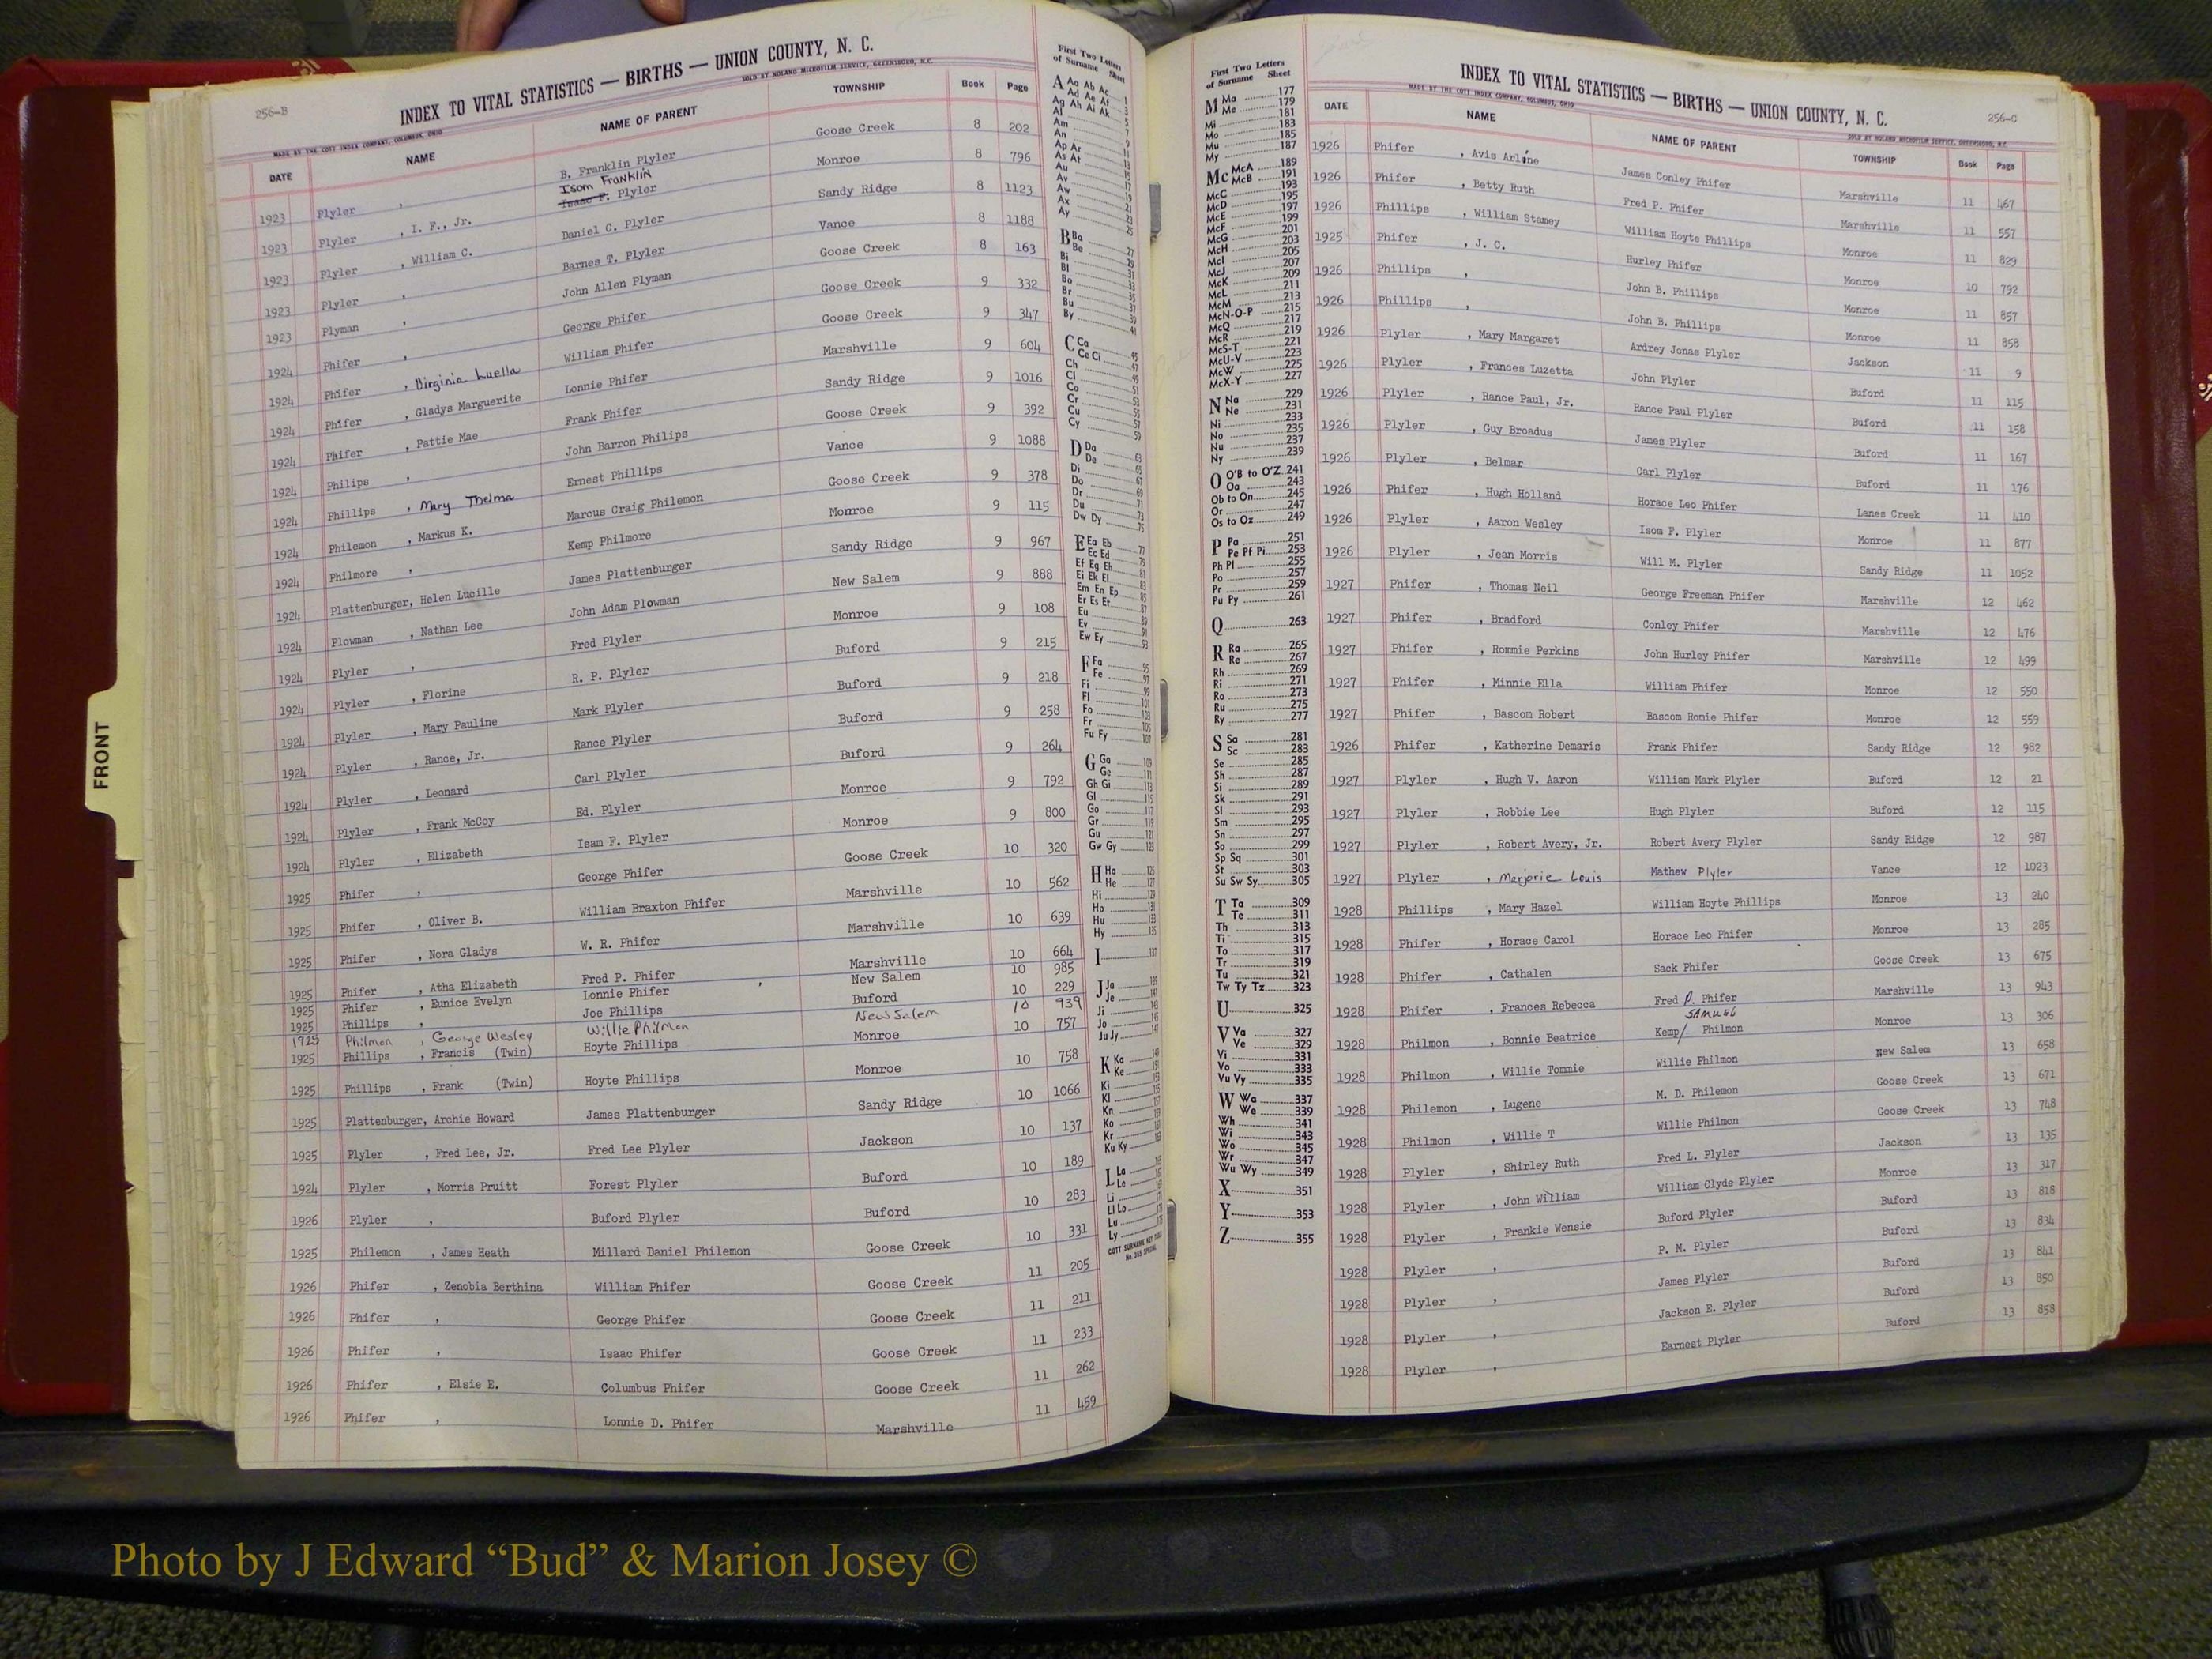 256-B
INDEX TO VITAL STATISTICS — BIRTHS — UNION COUNTY, N. C.
MADE BY THE COTT INDEX COMPANY, COLUMBUS, OHIO SOLD AT NOLAND MICROFILM SERVICE, GREENSBORO, N.C.
DATE NAME NAME OF PARENT TOWNSHIP Book Page
1923 Plyler , B. Franklin Plyler Goose Creek 8 202
Isom Franklin
1923 Plyler , I. F., Jr. Isaac F. Plyler Monroe 8 796
1923 Plyler , William C. Daniel C. Plyler Sandy Ridge 8 1123
1923 Plyler , Barnes T. Plyler Vance 8 1188
1923 Plyman , John Allen Plyman Goose Creek 8 163
1924 Phifer , George Phifer Goose Creek 9 332
1924 Phifer , Virginia Luella William Phifer Goose Creek 9 347
1924 Phifer , Gladys Marguerite Lonnie Phifer Marshville 9 604
1924 Phifer , Pattie Mae Frank Phifer Sandy Ridge 9 1016
1924 Philips , John Barron Philips Goose Creek 9 392
1924 Phillips , Mary Thelma Ernest Phillips Vance 9 1088
1924 Philemon , Markus K. Marcus Craig Philemon Goose Creek 9 378
1924 Philmore , Kemp Philmore Monroe 9 115
1924 Plattenburger, Helen Lucille James Plattenburger Sandy Ridge 9 967
1924 Plowman , Nathan Lee John Adam Plowman New Salem 9 888
1924 Plyler , Fred Plyler Monroe 9 108
1924 Plyler , Florine R. P. Plyler Buford 9 215
1924 Plyler , Mary Pauline Mark Plyler Buford 9 218
1924 Plyler , Rance, Jr. Rance Plyler Buford 9 258
1924 Plyler , Leonard Carl Plyler Buford 9 264
1924 Plyler , Frank McCoy Ed. Plyler Monroe 9 792
1924 Plyler , Elizabeth Isam F. Plyler Monroe 9 800
1925 Phifer , George Phifer Goose Creek 10 320
1925 Phifer , Oliver B. William Braxton Phifer Marshville 10 562
1925 Phifer , Nora Gladys W. R. Phifer Marshville 10 639
1925 Phifer , Atha Elizabeth Fred P. Phifer Marshville 10 664
1925 Phifer , Eunice Evelyn Lonnie Phifer New Salem 10 985
1925 Phillips , Joe Phillips Buford 10 229
1925 Philmon , George Wesley Willie Philmon New Salem 10 939
1925 Phillips , Francis (Twin) Hoyte Phillips Monroe 10 757
1925 Phillips , Frank (Twin) Hoyte Phillips Monroe 10 758
1925 Plattenburger, Archie Howard James Plattenburger Sandy Ridge 10 1066
1925 Plyler , Fred Lee, Jr. Fred Lee Plyler Jackson 10 137
1924 Plyler , Morris Pruitt Forest Plyler Buford 10 189
1926 Plyler , Buford Plyler Buford 10 283
1925 Philemon , James Heath Millard Daniel Philemon Goose Creek 10 331
1926 Phifer , Zenobia Berthina William Phifer Goose Creek 11 205
1926 Phifer , George Phifer Goose Creek 11 211
1926 Phifer , Isaac Phifer Goose Creek 11 233
1926 Phifer , Elsie E. Columbus Phifer Goose Creek 11 262
1926 Phifer , Lonnie D. Phifer Marshville 11 459
FRONT
First Two Letters
of Surname Sheet
A Aa Ab Ac 1
Ad Ae Af 3
Ag Ah Ai Ak 5
Al 7
Am 9
An 11
Ap Ar 13
As At 15
Au 17
Av 19
Aw 21
Ax 23
Ay 25
B Ba 27
Be 29
Bi 31
Bl 33
Bo 35
Br 37
Bu 39
By 41
C Ca 45
Ce Ci 47
Ch 49
Cl 51
Co 53
Cr 55
Cu 57
Cy 59
D Da 63
De 65
Di 67
Do 69
Dr 71
Du 73
Dw Dy 75
E Ea Eb 77
Ec Ed 79
Ef Eg Eh 81
Ei Ek El 83
Em En Ep 85
Er Es Et 87
Eu 89
Ev 91
Ew Ey 93
F Fa 95
Fe 97
Fi 99
Fl 101
Fo 103
Fr 105
Fu Fy 107
G Ga 109
Ge 111
Gh Gi 113
Gl 115
Go 117
Gr 119
Gu 121
Gw Gy 123
H Ha 125
He 127
Hi 129
Ho 131
Hu 133
Hy 135
I 137
J Ja 139
Je 141
Ji 143
Jo 145
Ju Jy 147
K Ka
Ke
Ki
Kl
Kn
Ko
Kr
Ku Ky
L La
Le
Li
Ll Lo
Lu
Ly
COTT SURNAME KEY TABLE
First Two Letters
of Surname Sheet
M Ma 177
Me 179
Mi 181
Mo 183
Mu 185
My 187
Mc McA 189
McB 191
McC 193
McD 195
McE 197
McF 199
McG 201
McH 203
McI 205
McJ 207
McK 209
McL 211
McM 213
McN-O-P 215
McQ 217
McR 219
McS-T 221
McU-V 223
McW 225
McX-Y 227
N Na 229
Ne 231
Ni 233
No 235
Nu 237
Ny 239
O O'B to O'Z 241
Oa 243
Ob to On 245
Or 247
Os to Oz 249
P Pa 251
Pe Pf Pi 253
Ph Pl 255
Po 257
Pr 259
Pu Py 261
Q 263
R Ra 265
Re 267
Rh 269
Ri 271
Ro 273
Ru 275
Ry 277
S Sa 281
Sc 283
Se 285
Sh 287
Si 289
Sk 291
Sl 293
Sm 295
Sn 297
So 299
Sp Sq 301
St 303
Su Sw Sy 305
T Ta 309
Te 311
Th 313
Ti 315
To 317
Tr 319
Tu 321
Tw Ty Tz 323
U 325
V Va 327
Ve 329
Vi 331
Vo 333
Vu Vy 335
W Wa 337
We 339
Wh 341
Wi 343
Wo 345
Wr 347
Wu Wy 349
X 351
Y 353
Z 355
INDEX TO VITAL STATISTICS — BIRTHS — UNION COUNTY, N. C.
256-C
MADE BY THE COTT INDEX COMPANY, COLUMBUS, OHIO SOLD AT NOLAND MICROFILM SERVICE, GREENSBORO, N.C.
DATE NAME NAME OF PARENT TOWNSHIP Book Page
1926 Phifer , Avis Arline James Conley Phifer Marshville 11 467
1926 Phifer , Betty Ruth Fred P. Phifer Marshville 11 557
1926 Phillips , William Stamey William Hoyte Phillips Monroe 11 829
1925 Phifer , J. C. Hurley Phifer Monroe 10 792
1926 Phillips , John B. Phillips Monroe 11 857
1926 Phillips , John B. Phillips Monroe 11 858
1926 Plyler , Mary Margaret Ardrey Jonas Plyler Jackson 11 9
1926 Plyler , Frances Luzetta John Plyler Buford 11 115
1926 Plyler , Rance Paul, Jr. Rance Paul Plyler Buford 11 158
1926 Plyler , Guy Broadus James Plyler Buford 11 167
1926 Plyler , Belmar Carl Plyler Buford 11 176
1926 Phifer , Hugh Holland Horace Leo Phifer Lanes Creek 11 410
1926 Plyler , Aaron Wesley Isom F. Plyler Monroe 11 877
1926 Plyler , Jean Morris Will M. Plyler Sandy Ridge 11 1052
1927 Phifer , Thomas Neil George Freeman Phifer Marshville 12 462
1927 Phifer , Bradford Conley Phifer Marshville 12 476
1927 Phifer , Rommie Perkins John Hurley Phifer Marshville 12 499
1927 Phifer , Minnie Ella William Phifer Monroe 12 550
1927 Phifer , Bascom Robert Bascom Romie Phifer Monroe 12 559
1926 Phifer , Katherine Demaris Frank Phifer Sandy Ridge 12 982
1927 Plyler , Hugh V. Aaron William Mark Plyler Buford 12 21
1927 Plyler , Robbie Lee Hugh Plyler Buford 12 115
1927 Plyler , Robert Avery, Jr. Robert Avery Plyler Sandy Ridge 12 987
1927 Plyler , Marjorie Louis Mathew Plyler Vance 12 1023
1928 Phillips , Mary Hazel William Hoyte Phillips Monroe 13 240
1928 Phifer , Horace Carol Horace Leo Phifer Monroe 13 285
1928 Phifer , Cathalen Sack Phifer Goose Creek 13 675
1928 Phifer , Frances Rebecca Fred P. Phifer Marshville 13 943
SAMUEL
1928 Philmon , Bonnie Beatrice Kemp/ Philmon Monroe 13 306
1928 Philmon , Willie Tommie Willie Philmon New Salem 13 658
1928 Philemon , Lugene M. D. Philemon Goose Creek 13 671
1928 Philmon , Willie T Willie Philmon Goose Creek 13 748
1928 Plyler , Shirley Ruth Fred L. Plyler Jackson 13 135
1928 Plyler , John William William Clyde Plyler Monroe 13 317
1928 Plyler , Frankie Wensie Buford Plyler Buford 13 818
1928 Plyler , P. M. Plyler Buford 13 834
1928 Plyler , James Plyler Buford 13 841
1928 Plyler , Jackson E. Plyler Buford 13 850
1928 Plyler , Earnest Plyler Buford 13 858
Photo by J Edward “Bud” & Marion Josey ©